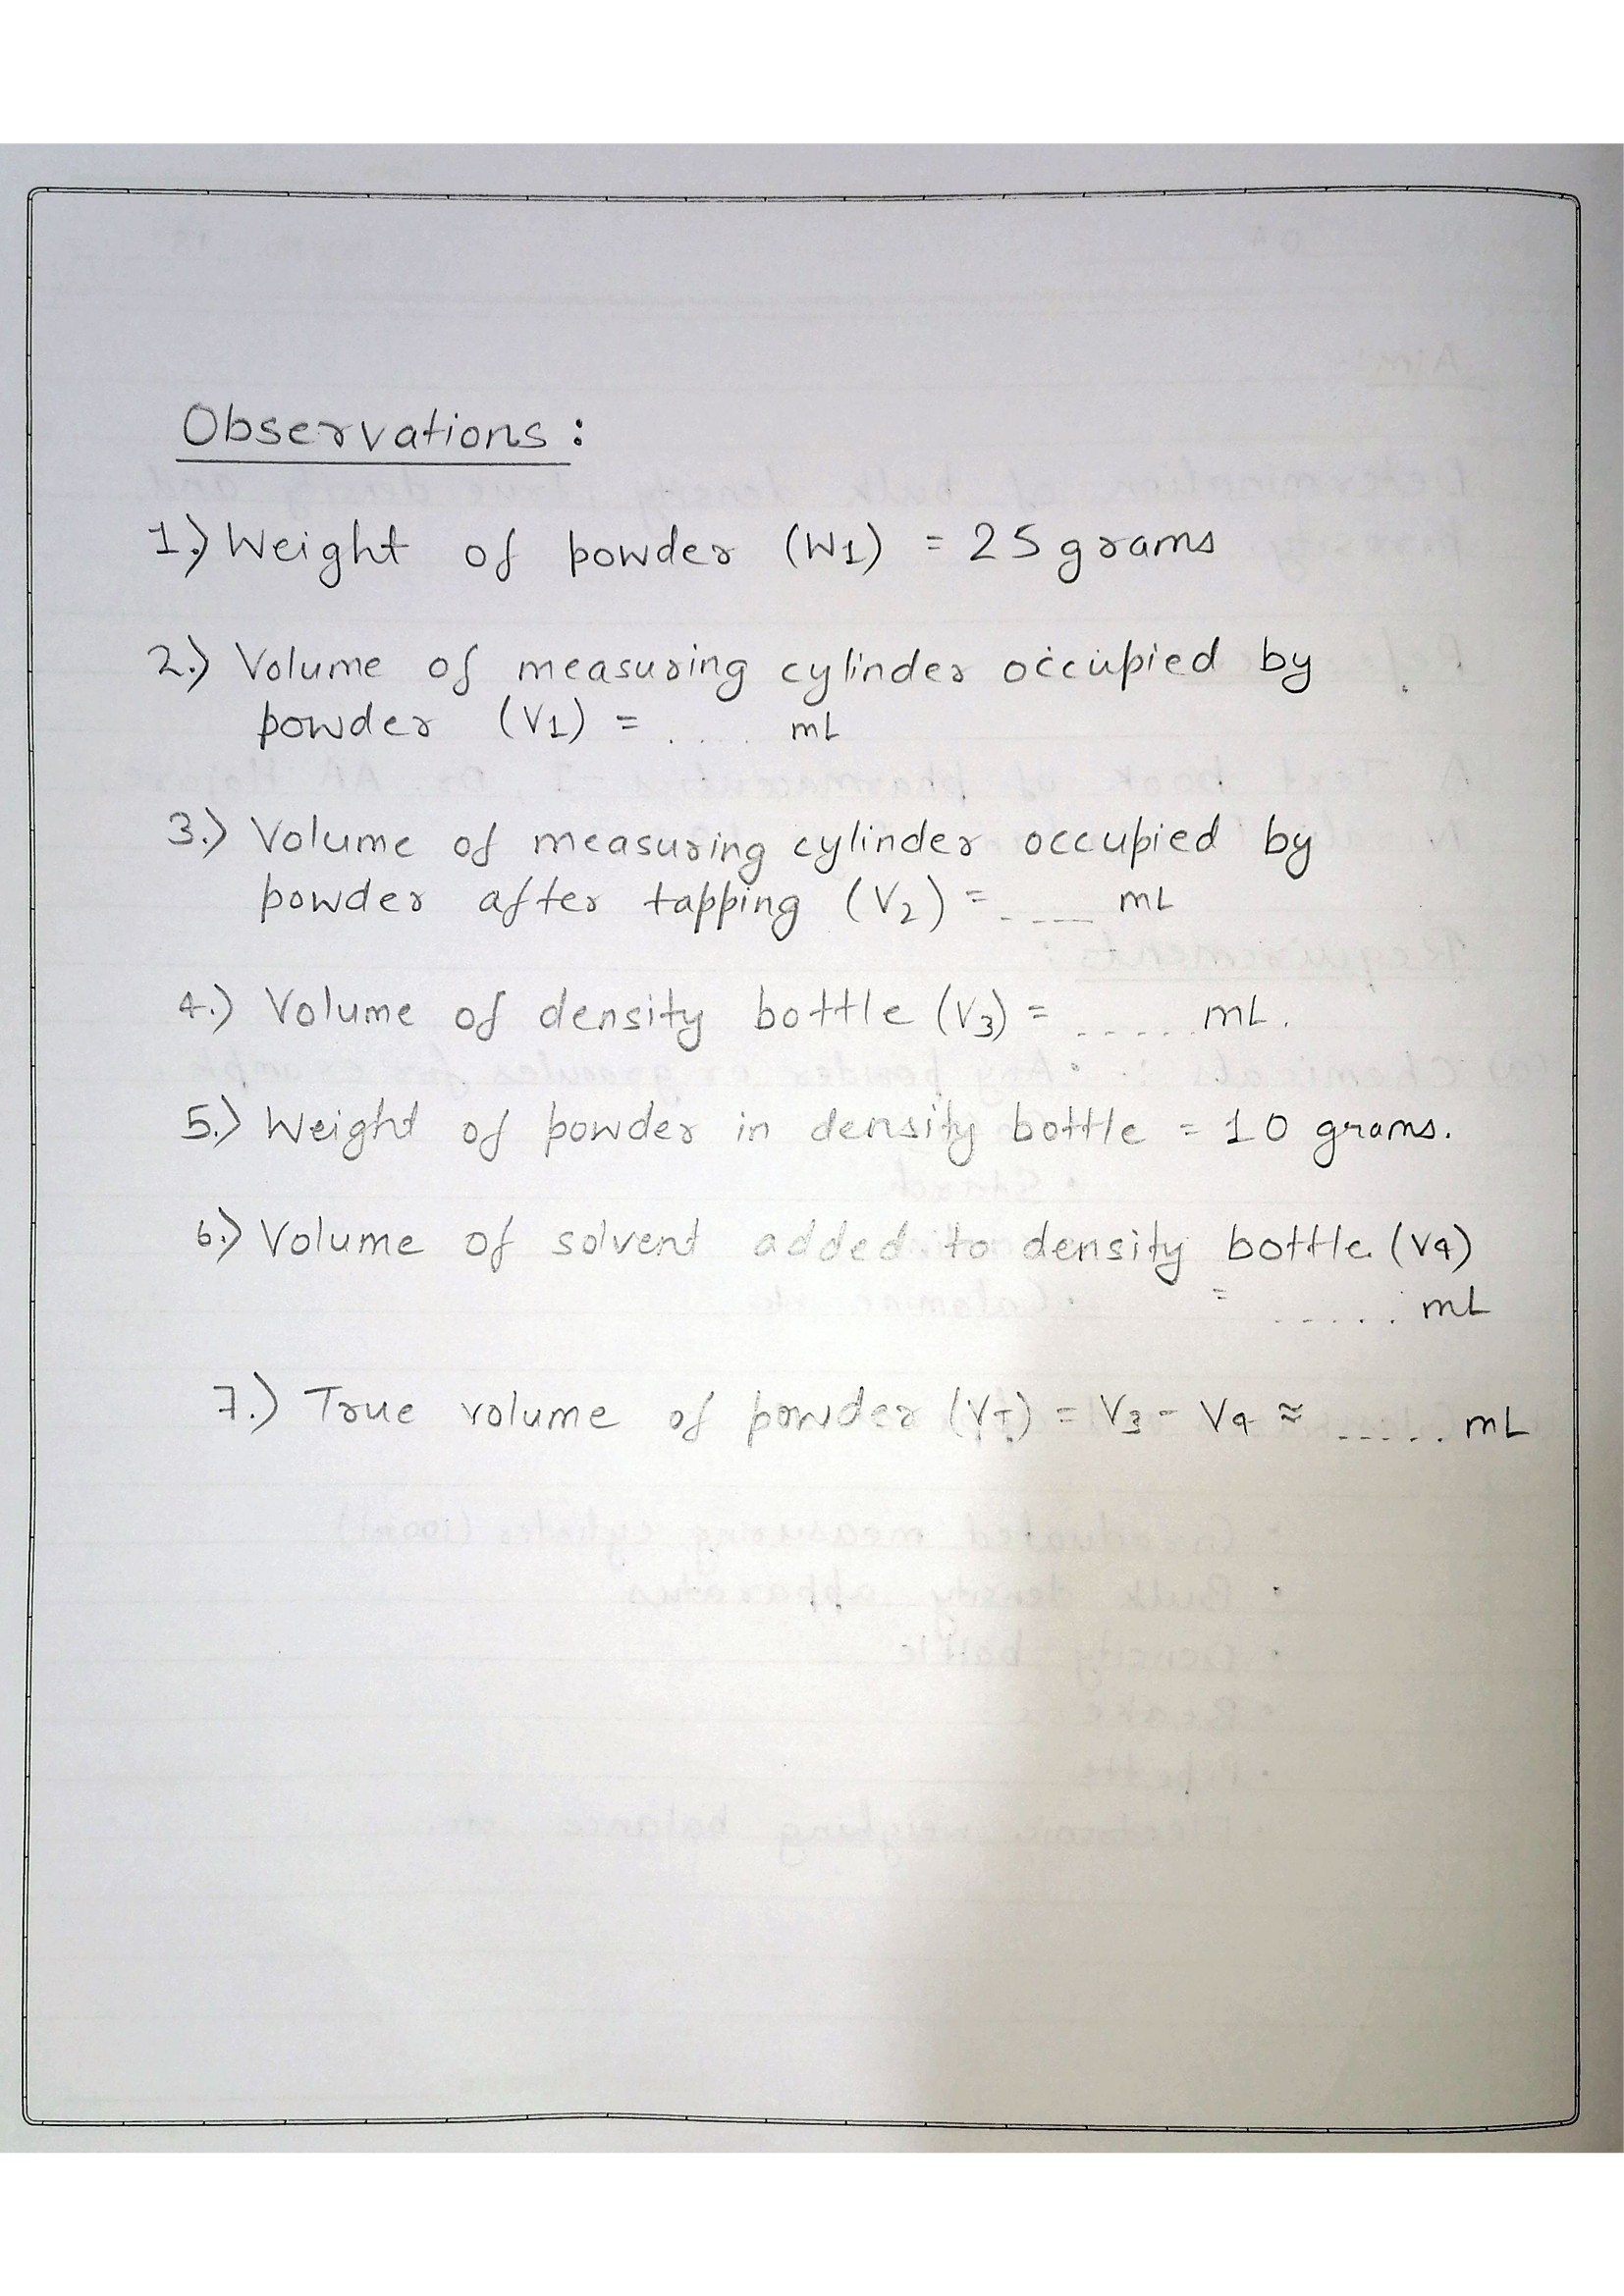 Observations :
1.) Weight of powder (W1) = 25 grams
2.) Volume of measuring cylinder occupied by
powder (V1) = .... mL
3.) Volume of measuring cylinder occupied by
powder after tapping (V2) = ---- mL
4.) Volume of density bottle (V3) = ..... mL.
5.) Weight of powder in density bottle = 10 grams.
6.) Volume of solvent added to density bottle. (V4)
= ..... mL
7.) True volume of powder (VT) = V3 - V4 ≈ ..... mL